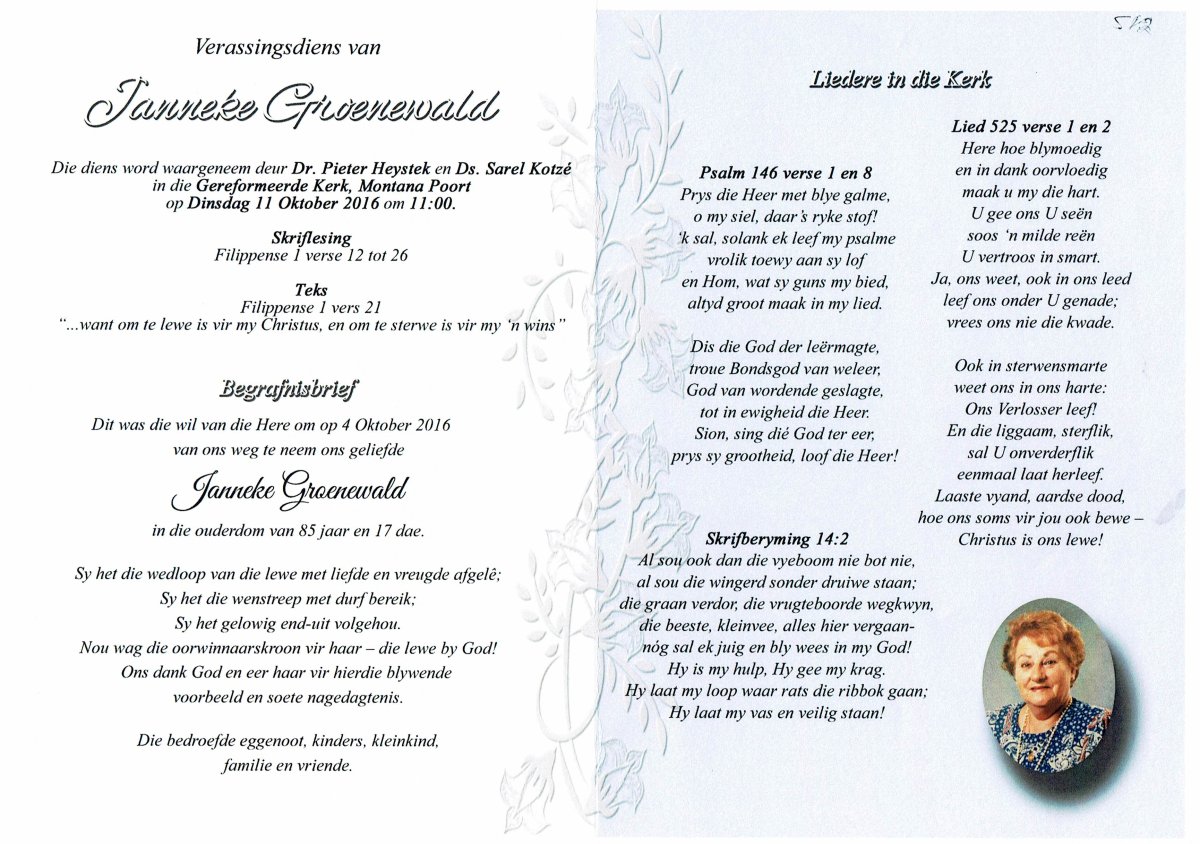 Verassingsdiens van
Janneke Groenewald
Die diens word waargeneem deur Dr. Pieter Heystek en Ds. Sarel Kotzé
in die Gereformeerde Kerk, Montana Poort
op Dinsdag 11 Oktober 2016 om 11:00.
Skriflesing
Filippense 1 verse 12 tot 26
Teks
Filippense 1 vers 21
“...want om te lewe is vir my Christus, en om te sterwe is vir my ‘n wins”
Begrafnisbrief
Dit was die wil van die Here om op 4 Oktober 2016
van ons weg te neem ons geliefde
Janneke Groenewald
in die ouderdom van 85 jaar en 17 dae.
Sy het die wedloop van die lewe met liefde en vreugde afgelê;
Sy het die wenstreep met durf bereik;
Sy het gelowig end-uit volgehou.
Nou wag die oorwinnaarskroon vir haar – die lewe by God!
Ons dank God en eer haar vir hierdie blywende
voorbeeld en soete nagedagtenis.
Die bedroefde eggenoot, kinders, kleinkind,
familie en vriende.
Liedere in die Kerk
Psalm 146 verse 1 en 8
Prys die Heer met blye galme,
o my siel, daar’s ryke stof!
‘k sal, solank ek leef my psalme
vrolik toewy aan sy lof
en Hom, wat sy guns my bied,
altyd groot maak in my lied.
Dis die God der leërmagte,
troue Bondsgod van weleer,
God van wordende geslagte,
tot in ewigheid die Heer.
Sion, sing dié God ter eer,
prys sy grootheid, loof die Heer!
Skrifberyming 14:2
Al sou ook dan die vyeboom nie bot nie,
al sou die wingerd sonder druiwe staan;
die graan verdor, die vrugteboorde wegkwyn,
die beeste, kleinvee, alles hier vergaan-
nóg sal ek juig en bly wees in my God!
Hy is my hulp, Hy gee my krag.
Hy laat my loop waar rats die ribbok gaan;
Hy laat my vas en veilig staan!
Lied 525 verse 1 en 2
Here hoe blymoedig
en in dank oorvloedig
maak u my die hart.
U gee ons U seën
soos ‘n milde reën
U vertroos in smart.
Ja, ons weet, ook in ons leed
leef ons onder U genade;
vrees ons nie die kwade.
Ook in sterwensmarte
weet ons in ons harte:
Ons Verlosser leef!
En die liggaam, sterflik,
sal U onverderflik
eenmaal laat herleef.
Laaste vyand, aardse dood,
hoe ons soms vir jou ook bewe –
Christus is ons lewe!